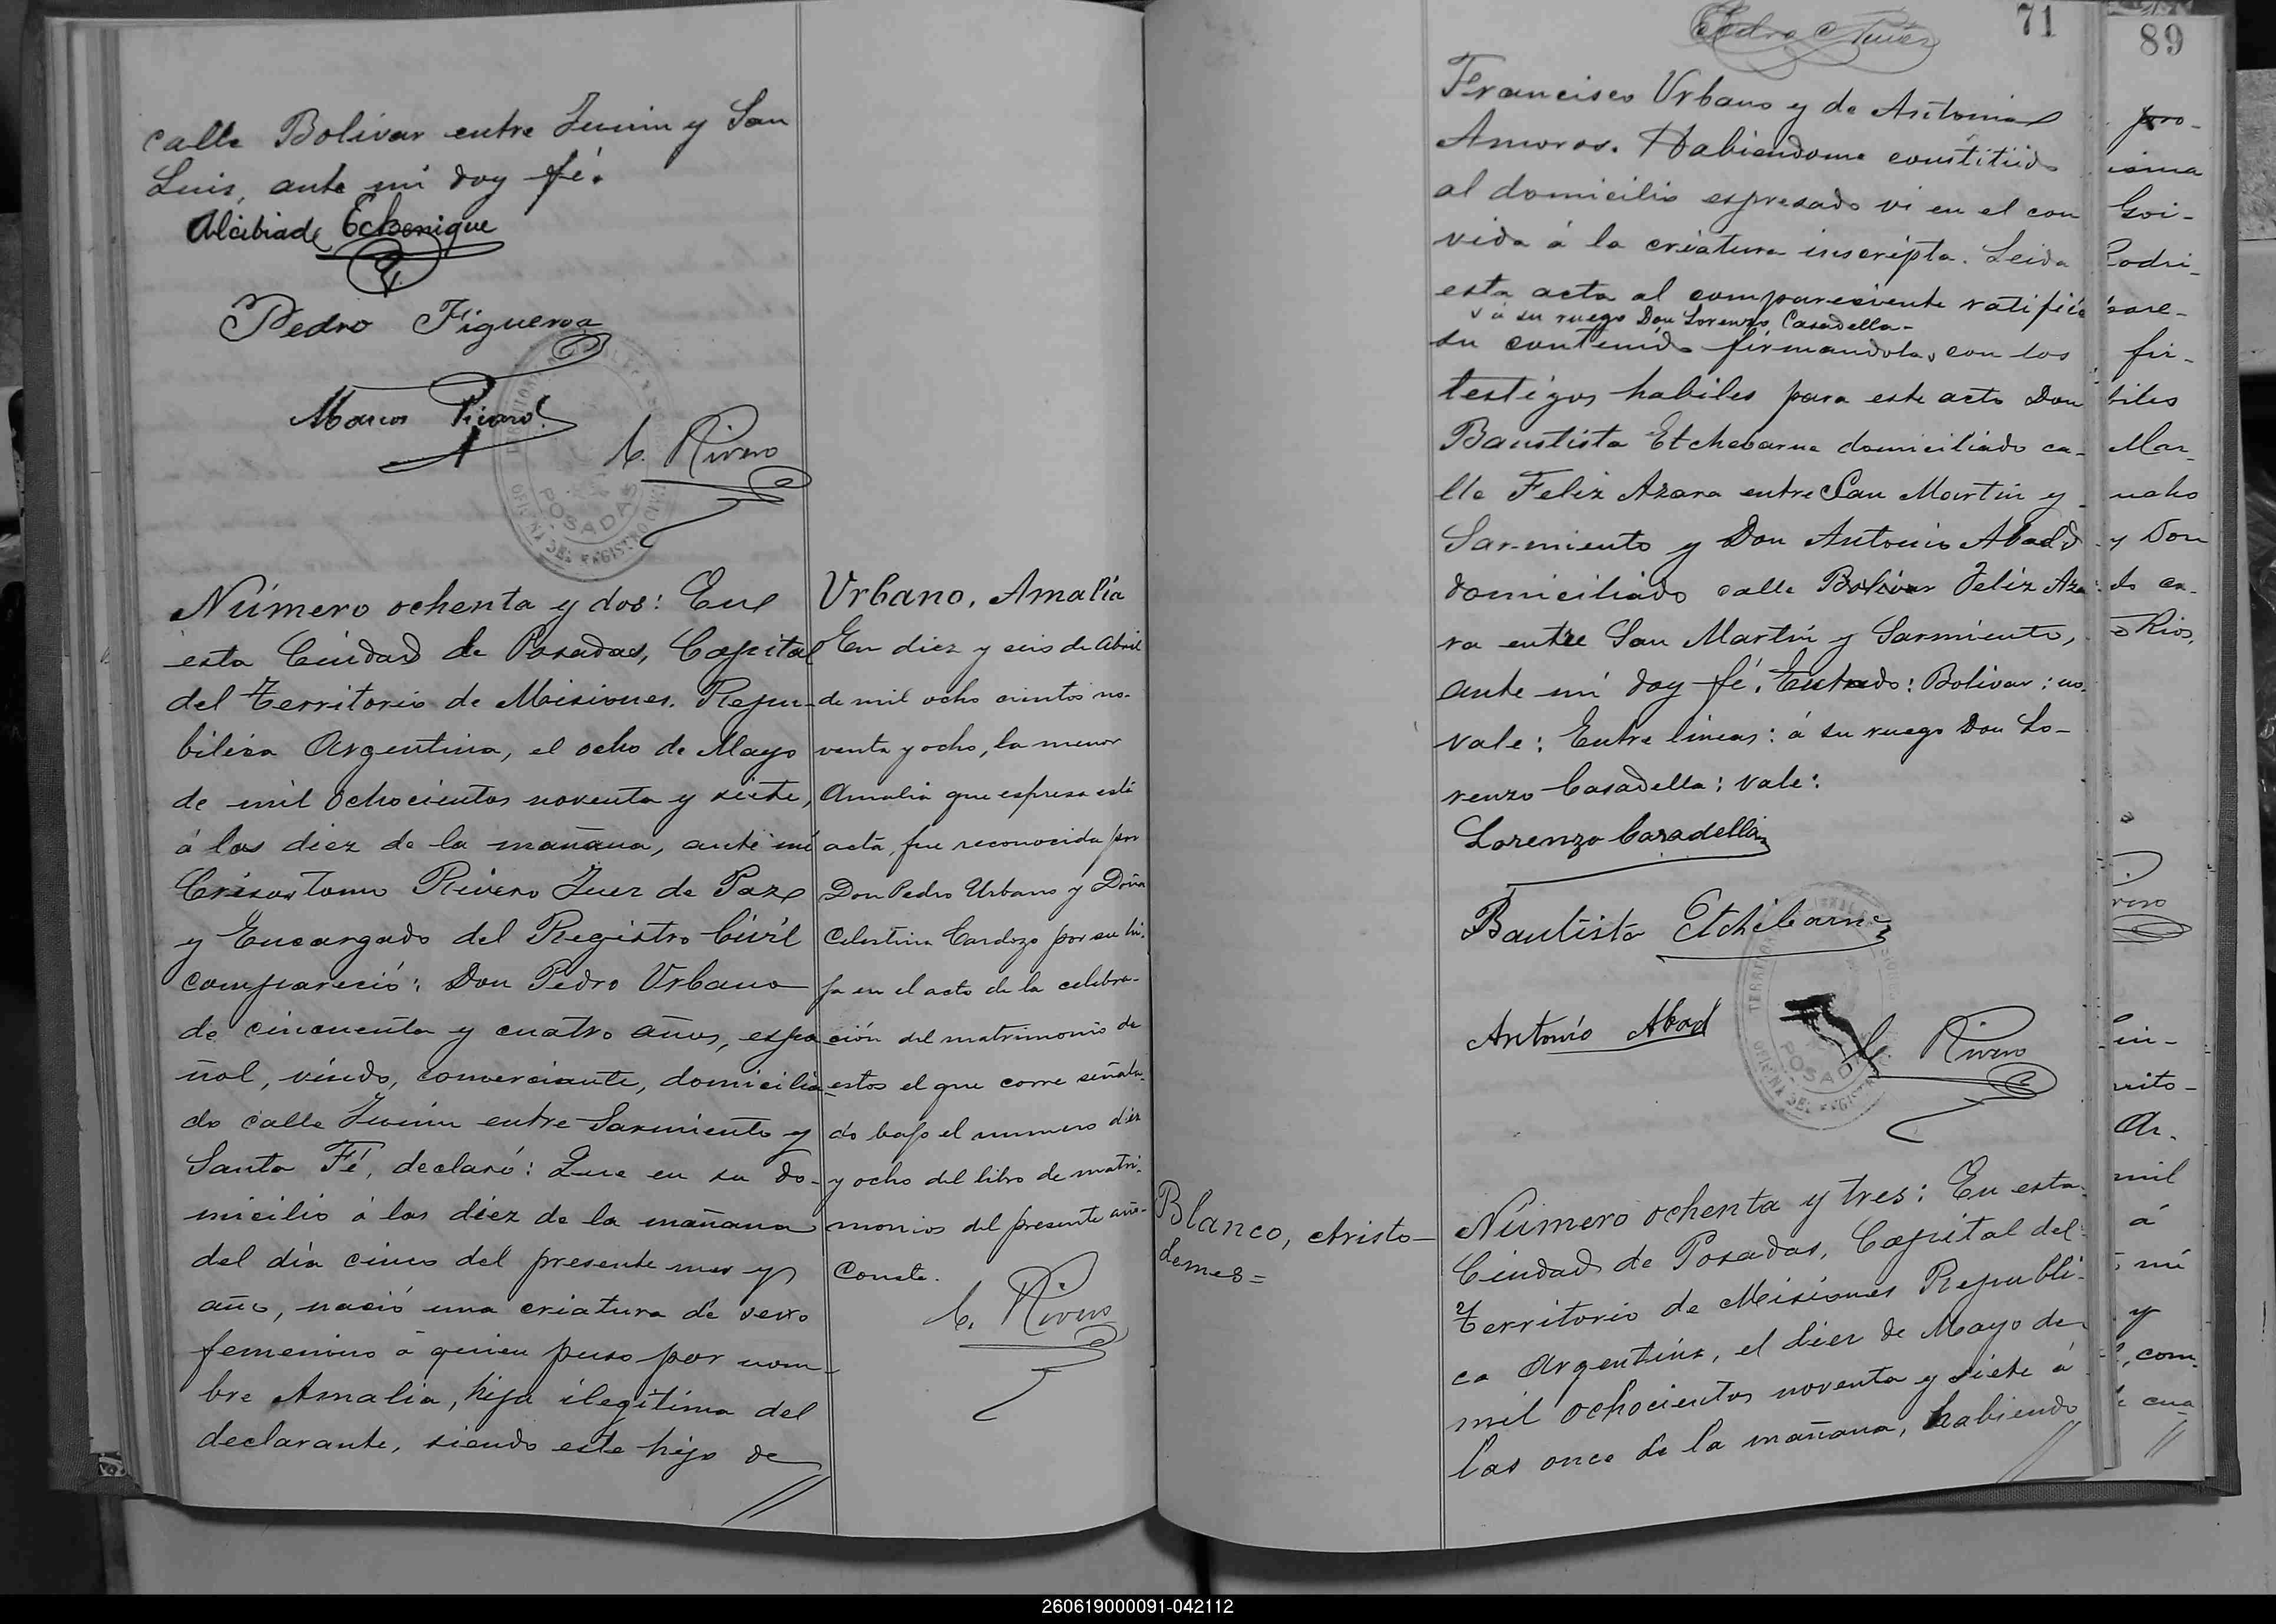 calle Bolivar entre Junin y San
Luis, ante mi doy fé.
Alcibiade Echenique
Pedro Figueroa
Marcos
C. Rivero
POSADAS
OFICINA DEL REGISTRO CIVIL
Número ochenta y dos: En
esta Ciudad de Posadas, Capital
del Territorio de Misiones. Repu-
blica Argentina, el ocho de Mayo
de mil ochocientos noventa y siete,
á las diez de la mañana, ante mi
Crisostomo Rivero Juez de Paz
y Encargado del Registro Civil
compareció: Don Pedro Urbano
de cincuenta y cuatro años, espa
ñol, viudo, comerciante, domicilia-
do calle Junin entre Sarmiento y
Santa Fé, declaró: Que en su do-
micilio á las diez de la mañana
del dia cinco del presente mes y
año, nació una criatura de sexo
femenino á quien puso por nom-
bre Amalia, hija ilegitima del
declarante, siendo este hijo de
Urbano, Amalia
En diez y seis de Abril
de mil ocho cientos no-
venta y ocho, la menor
Amalia que espresa está
acta, fue reconocida por
Don Pedro Urbano y Doña
Celestina Cardozo por su hi-
ja en el acto de la celebra-
ción del matrimonio de
estos el que corre señala-
do bajo el numero diez
y ocho del libro de matri-
monios del presente año-
Conste.
C. Rivero
71
Francisco Urbano y de Antonia
Amoros. Habiendome constituido
al domicilio espresado vi en el con
vida á la criatura inscripta. Leida
esta acta al compareciente ratificó
y á su ruego Don Lorenzo Casadella-
su contenido firmandola, con los
testigos habiles para este acto Don
Baustista Etchebarne domiciliado ca-
lle Feliz Azara entre San Martin y
Sarmiento y Don Antonio Abadd
domiciliado calle Bolivar Feliz Aza-
ra entre San Martin y Sarmiento,
ante mi doy fé. Entrado: Bolivar: no
vale: Entre lineas: á su ruego Don Lo-
renzo Casadella: vale:
Lorenzo Casadella
Bautista Etchebarne
Antonio Abad
C. Rivero
POSADAS
Blanco, Aristo-
demes=
Número ochenta y tres: En esta
Ciudad de Posadas, Capital del
Territorio de Misiones Republi-
ca Argentina, el diez de Mayo de
mil ochocientos noventa y siete á
las once de la mañana, habiendo
89
pro-
isma
Goi-
Rodri-
fir-
biles
Mar-
y Don
do ca-
Rios,
rito-
Ar-
mil
á
mi
y
, com-
cua-
260619000091-042112